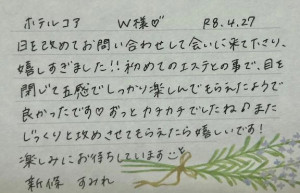 ホテルコア　W様♡　R8.4.27
日を改めてお問い合わせして会いに来て下さり、
嬉しすぎました!! 初めてのエステとの事で、目を
閉じて五感でしっかり楽しんでもらえたようで
良かったです♡ずっとカチカチでしたね♪また
じっくりと攻めさせてもらえたら嬉しいです!
楽しみにお待ちしています
新條　すみれ